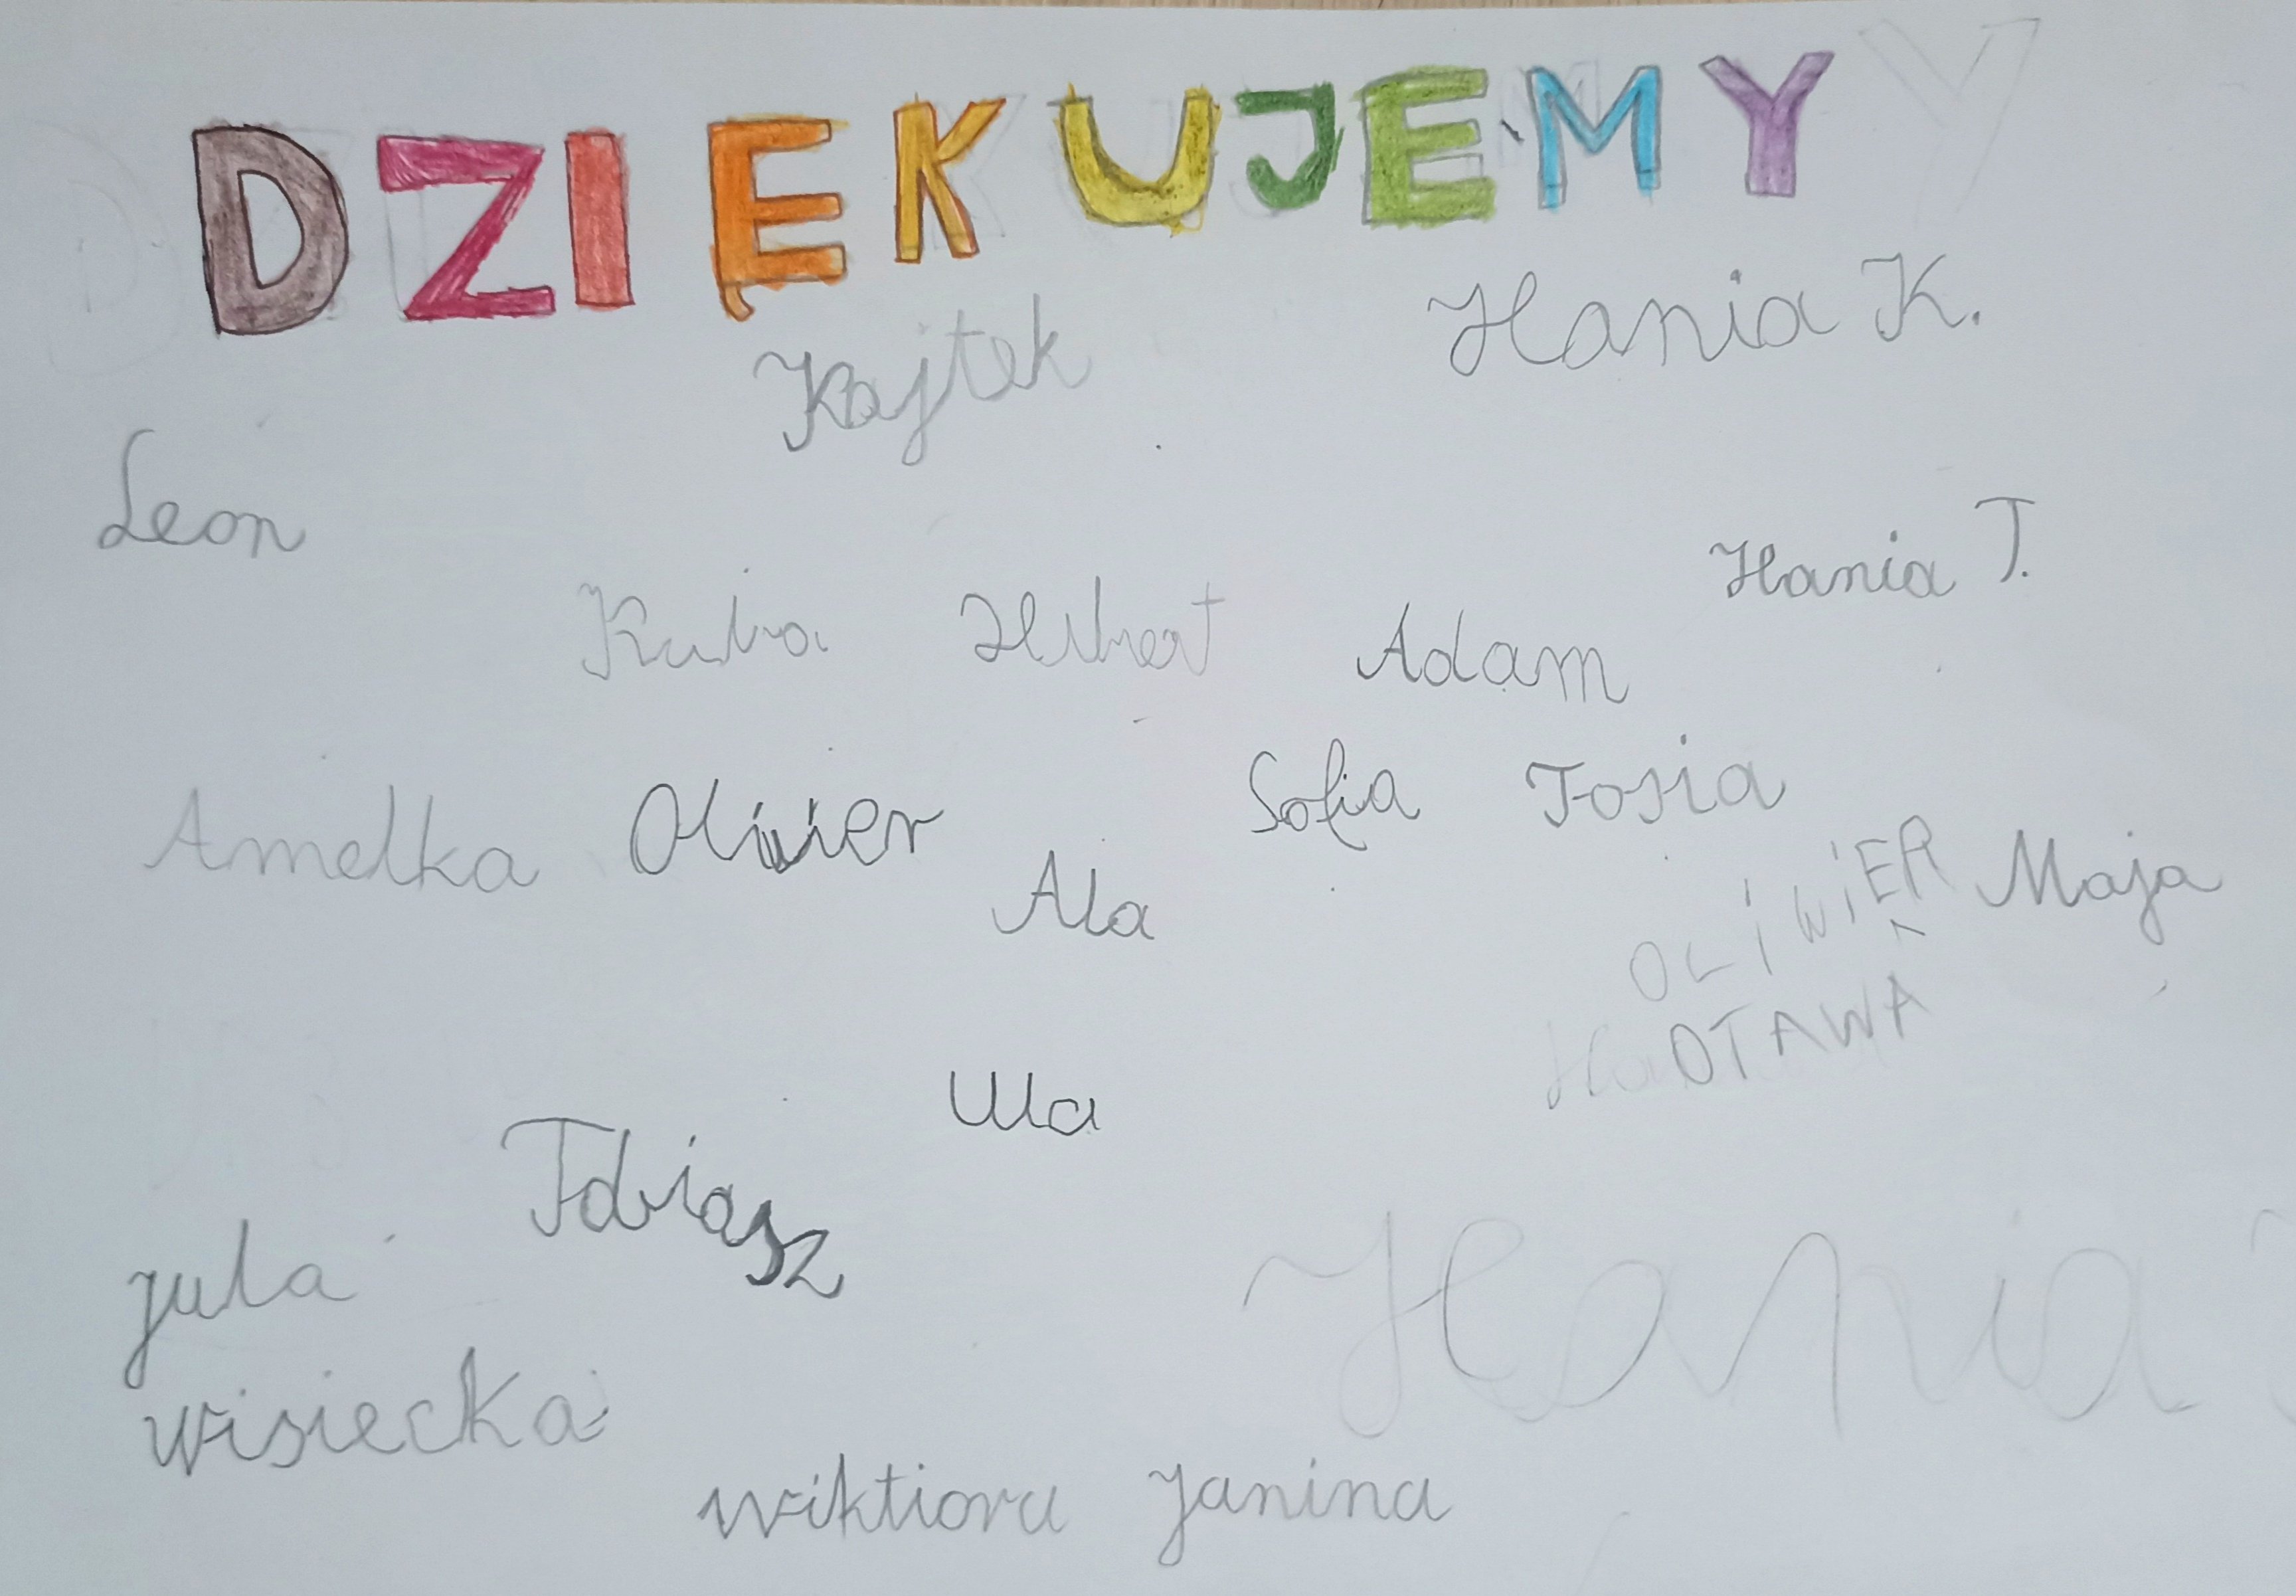 DZIĘKUJEMY
Kajtek
Hania K.
Leon
Hania T.
Kuba Hubert Adam
Amelka Oliwier Sofia Tosia
Ala
OLIWIER Maja
OTAWA
Ula
Tobiasz
jula
wisiecka
Hania
wiktiora Janina